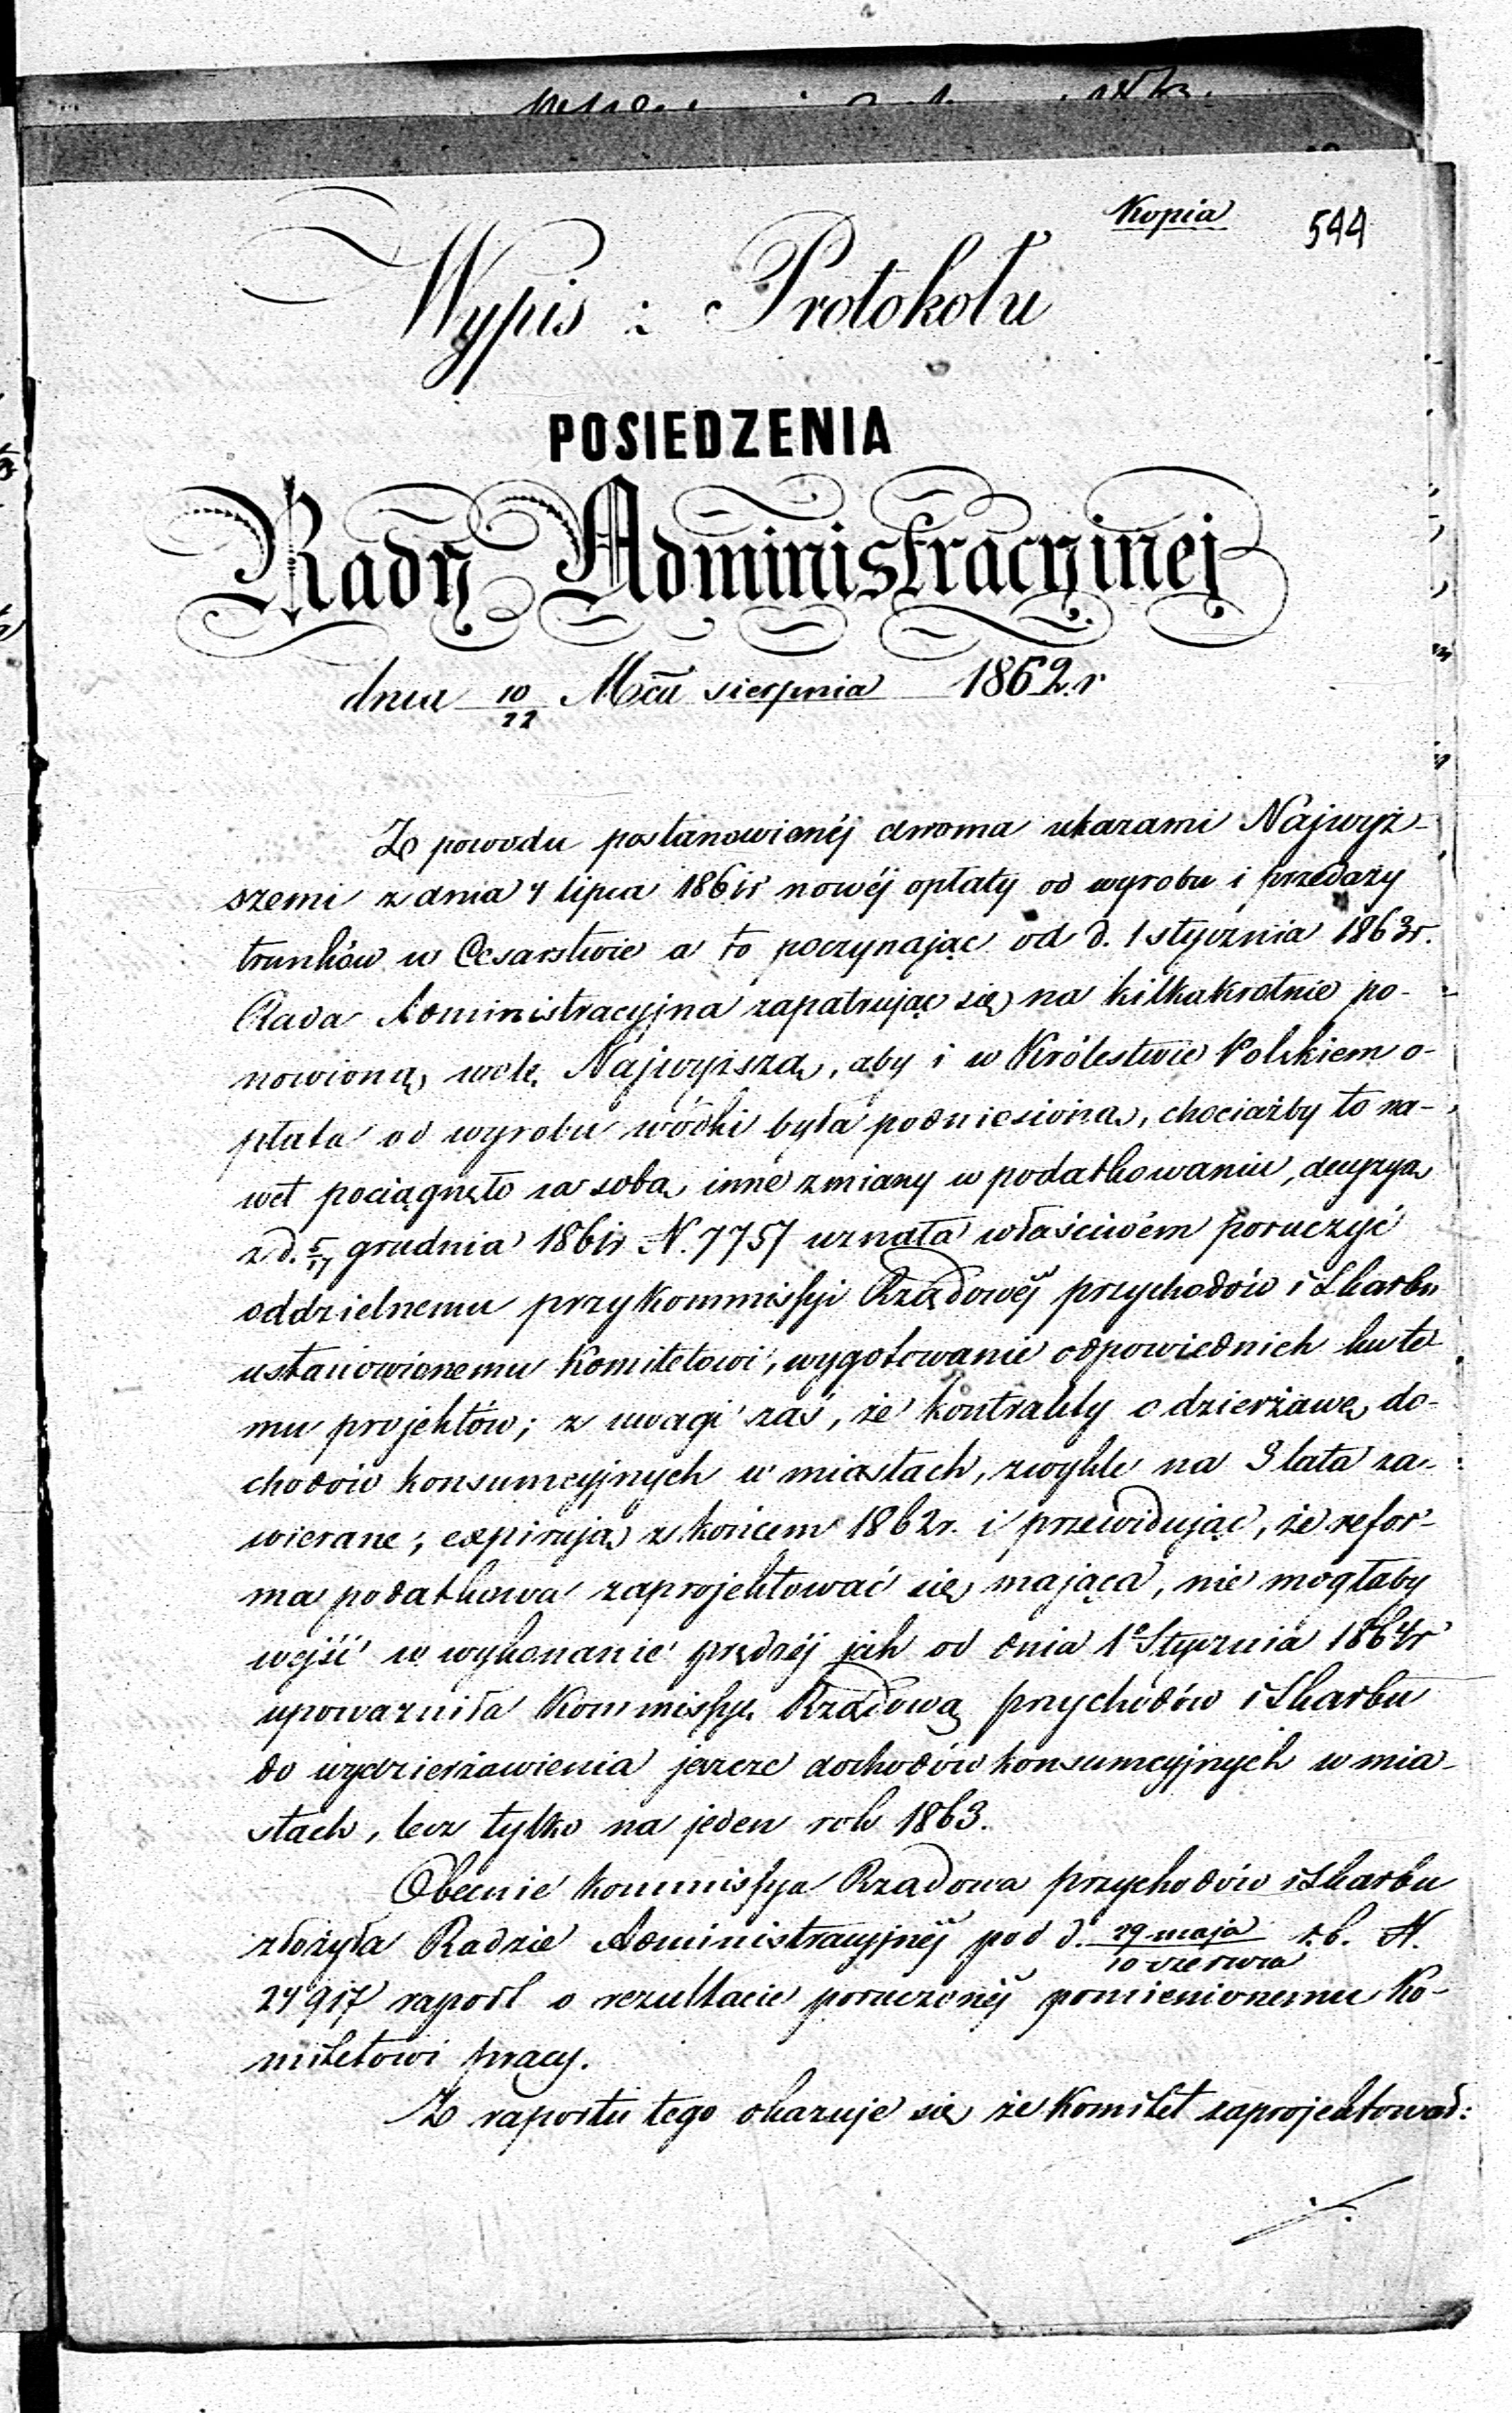 Kopia 544
Wypis z Protokołu
POSIEDZENIA
Rady Administracyjnej
dnia 10/22 Mcu sierpnia 1862 r
Z powodu postanowionéj dwoma ukazami Najwyż-
szemi z dnia 4 lipca 1861r nowéj opłaty od wyrobu i przedaży
trunków w Cesarstwie a to poczynając od d. 1 stycznia 1863r.
Rada Administracyjna zapatrując się na kilkakrotnie po-
nowioną wolę Najwyższą, aby i w Królestwie Polskiem o-
płata od wyrobu wódki była podniesiona, chociażby to na-
wet pociągnęło za sobą inne zmiany w podatkowaniu, decyzyą
z d. 5/17 grudnia 1861r N. 7757 uznała właściwém poruczyć
oddzielnemu przy Kommissyi Rządowéj przychodów i Skarbu
ustanowionemu Komitetowi, wygotowanie odpowiednich ku te-
mu projektów; z uwagi zaś, że kontrakty o dzierżawę do-
chodów konsumcyjnych w miastach, zwykle na 3 lata za-
wierane, expirują z końcem 1862r. i przewidując, że refor-
ma podatkowa zaprojektować się mająca, nie mogłaby
wejść w wykonanie prędzéj jak od dnia 1o Stycznia 1864r
upoważniła Kommissyę Rządową przychodów i Skarbu
do wydzierżawienia jeszcze dochodów konsumcyjnych w mia-
stach, lecz tylko na jeden rok 1863.
Obecnie Kommissya Rządowa przychodów i Skarbu
złożyła Radzie Administracyjnéj pod d. 29 maja/10 czerwca r.b. N.
24917 raport o rezultacie poruczonéj pomienionemu Ko-
mitetowi pracy.
Z raportu tego okazuje się że Komitet zaprojektował: